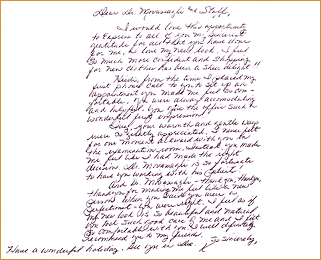 Dear Dr. Movassaghi & Staff,
I would love this opportunity
to express to all of you my sincerest
gratitude for all that you have done
for me. I love my new look. I feel
so much more confident and shopping
for new clothes has been a sheer delight!!
Heidi, from the time I placed my
first phone call to you to set up an
appointment you made me feel so com-
fortable. You were always accomodating
and helpful. You give the office such a
wonderful first impression!
your warmth and gentle ways
were so greatly appreciated. I never felt
for one moment awkward with you in
the examination room, instead, you made
me feel like I had made the right
decision. Dr. Movassaghi is so fortunate
to have you working with his patients!
And Dr. Movassaghi - Thank you, thank you,
thank you for making me feel like a new
person. When you said you were a
perfectionist - you were right. I feel as if
my new look is so beautiful and natural
You took such good care of me and I felt
so comfortable with you. I will definitely
recommend you to my friends.
Sincerely,
Have a wonderful holiday. See you in Dec.